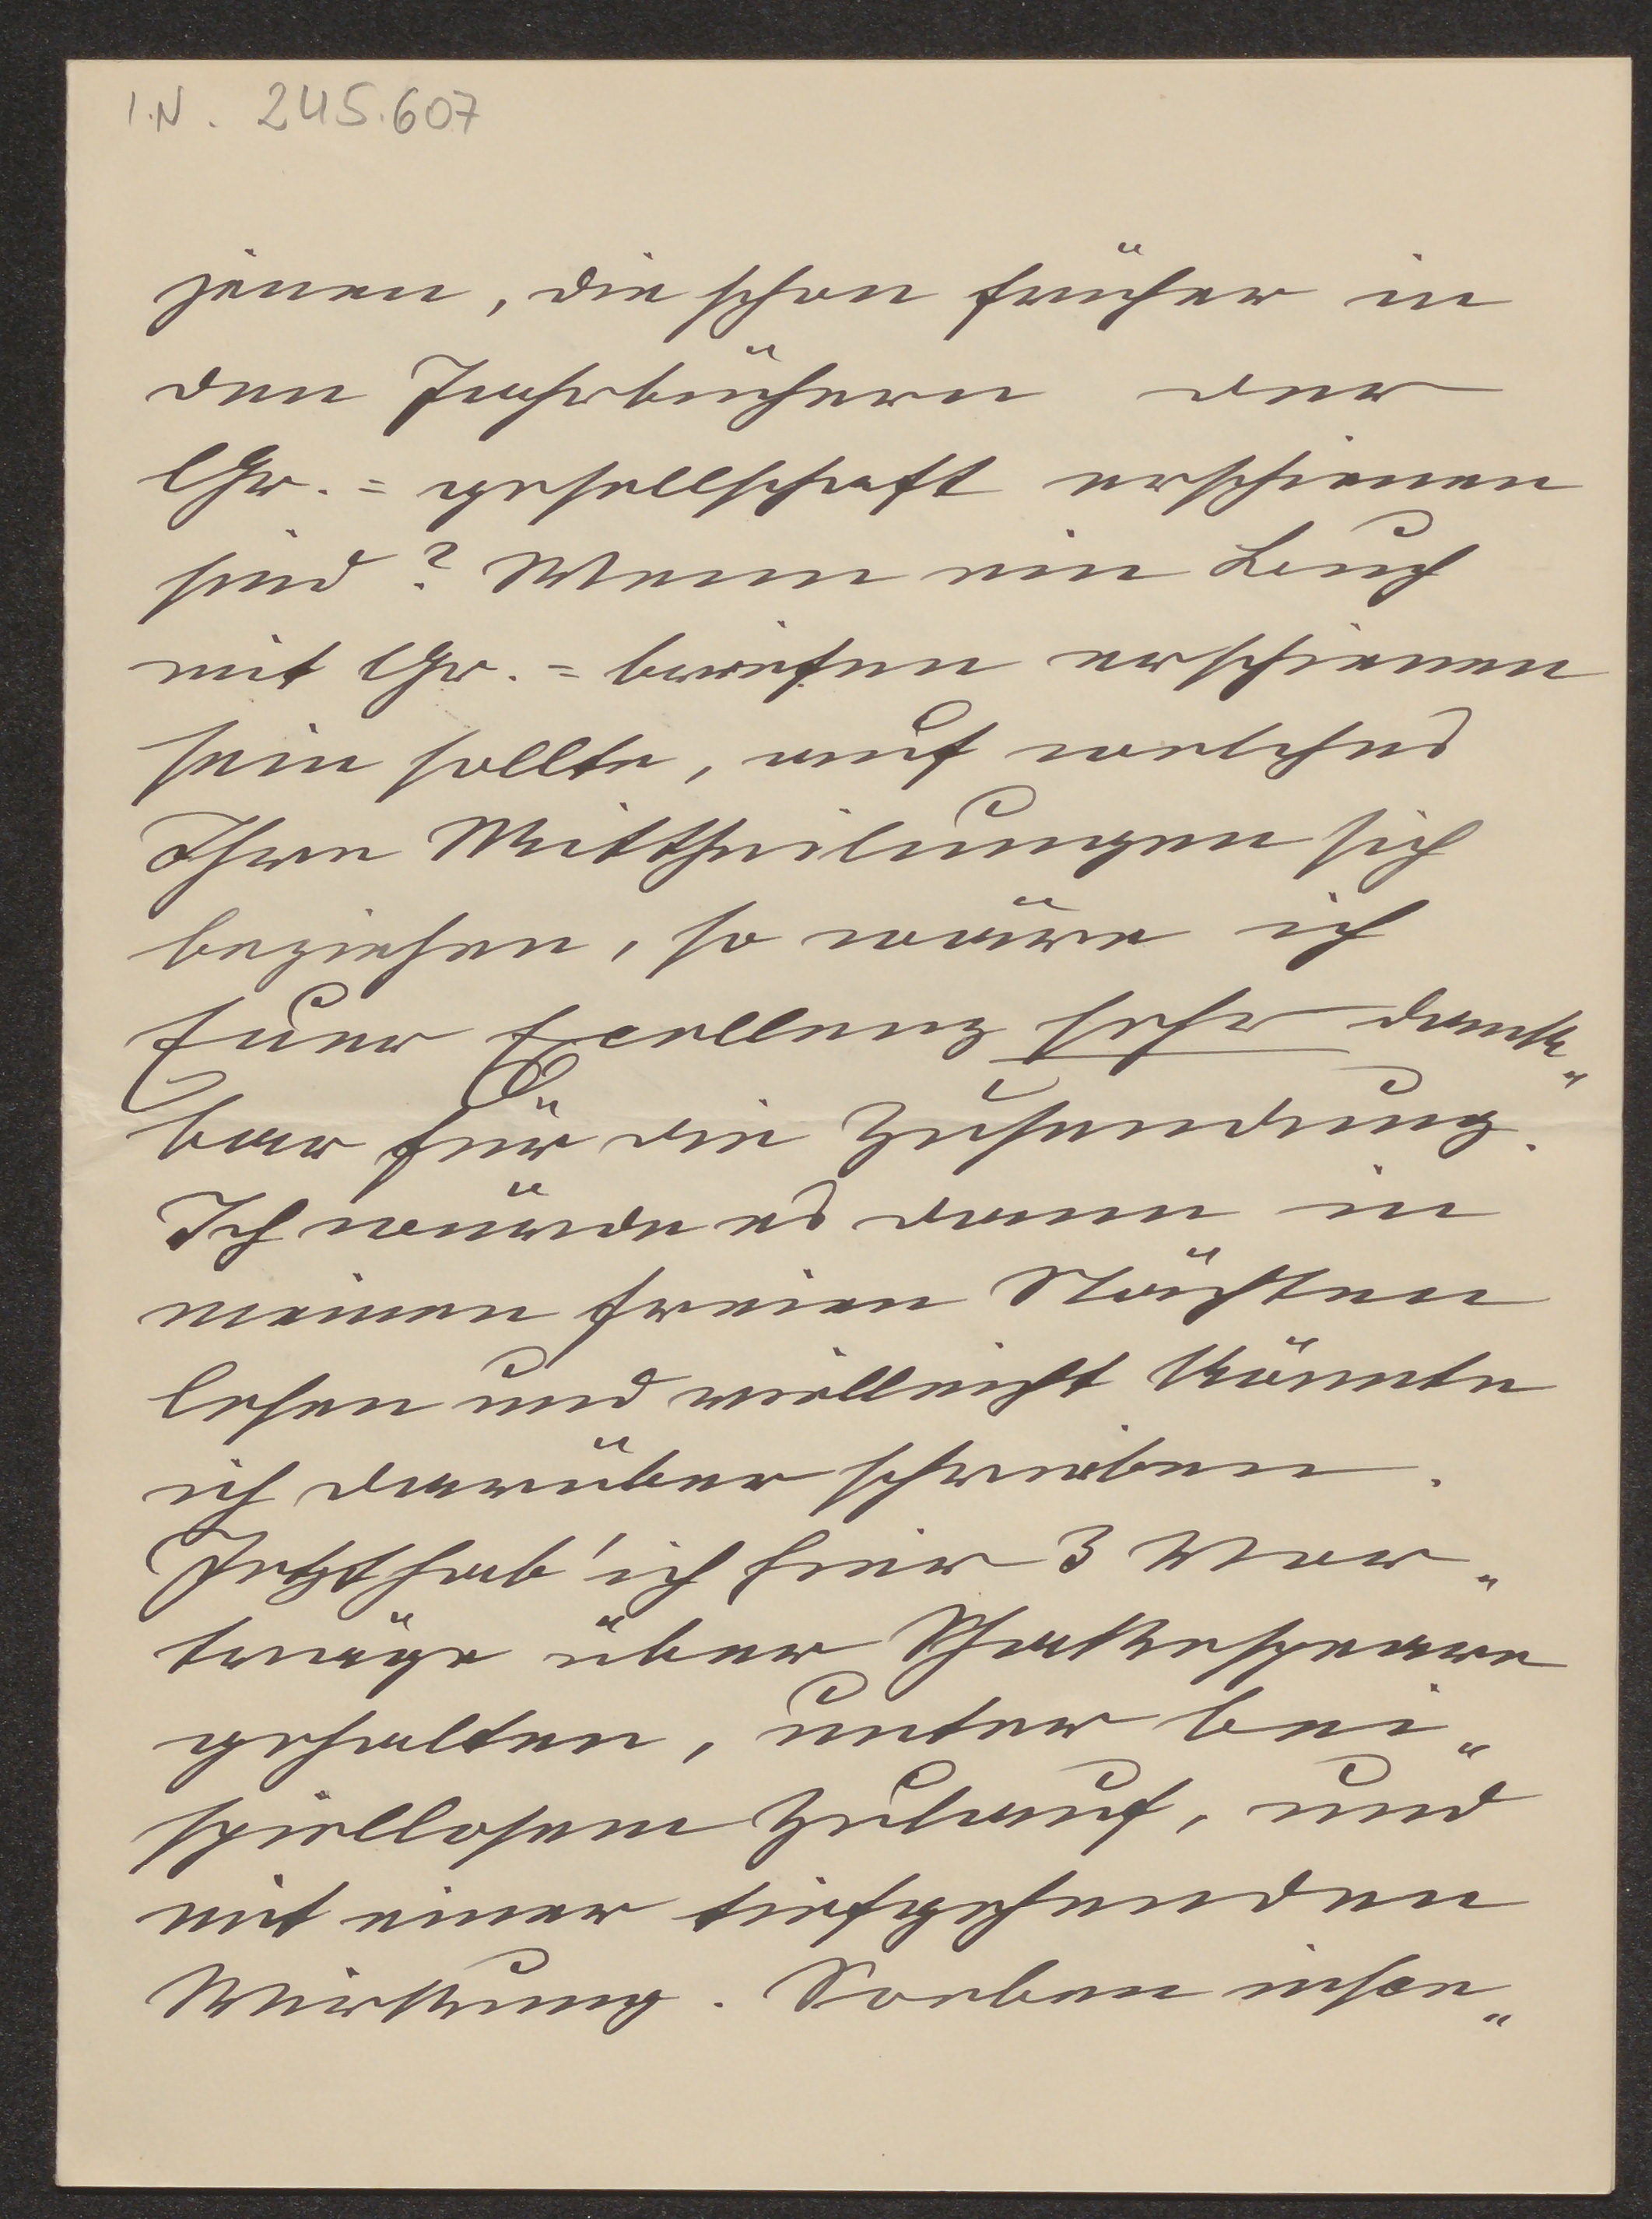 I.N. 245.607
jenen, die schon früher in
den Jahrbüchern der
Gr.=gesellschaft erschienen
sind? Wenn ein Buch
mit Gr.=briefen erschienen
sein sollte, auf welches
Ihre Mittheilungen sich
beziehen, so wäre ich
Euer Excellenz sehr dank„
bar für die Zusendung.
Ich würde es dann in
meinen freien Nächten
lesen und vielleicht könnte
ich darüber schreiben.
Jetzt hab' ich hier 3 Vor„
träge über Shakespeare
gehalten, unter bei„
spiellosem Zulauf, und
mit einer tiefgehenden
Wirkung. Soeben insce„